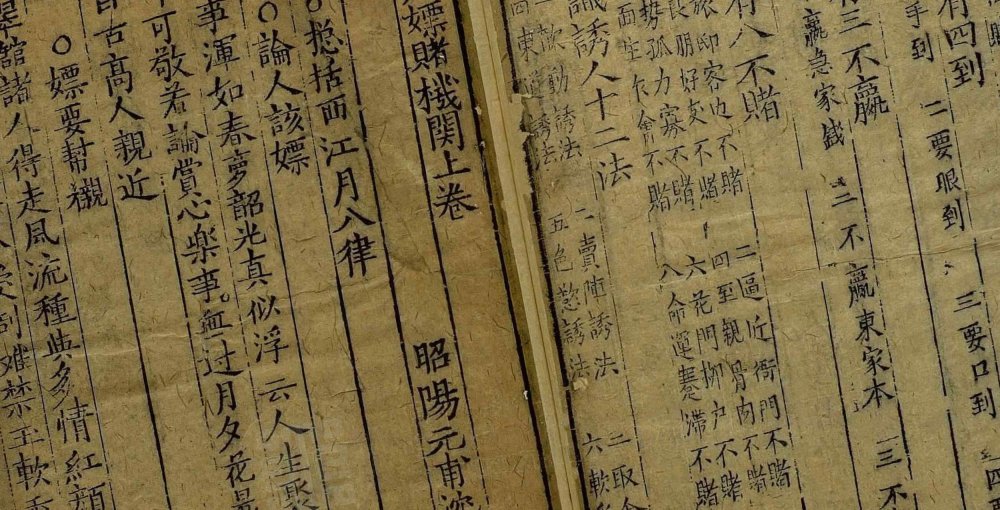 有四到
手到 二要眼到 三要口到 四
三不贏
贏急家錢 二不贏東家本 三不
有八不賭
旅邸客也不賭 二逼近衙門不賭
良朋好友不賭 四至親骨肉不賭
勢孤力寡不賭 六花門柳户不賭
會不賭 八命運蹇滯不賭
誘人十二法
二賣陣誘法
動誘法 五色慾誘法 六軟
四東道誘法
嫖賭機関上卷 昭陽元甫沈
○捴括西江月八律
○論人該嫖
事渾如春夢韶光真似浮云人生聚
可敬若論賞心楽事。無过月夕花
古高人親近
○嫖要幇襯
舘諸人得走風流種與多情紅顏
到难禁玉軟香